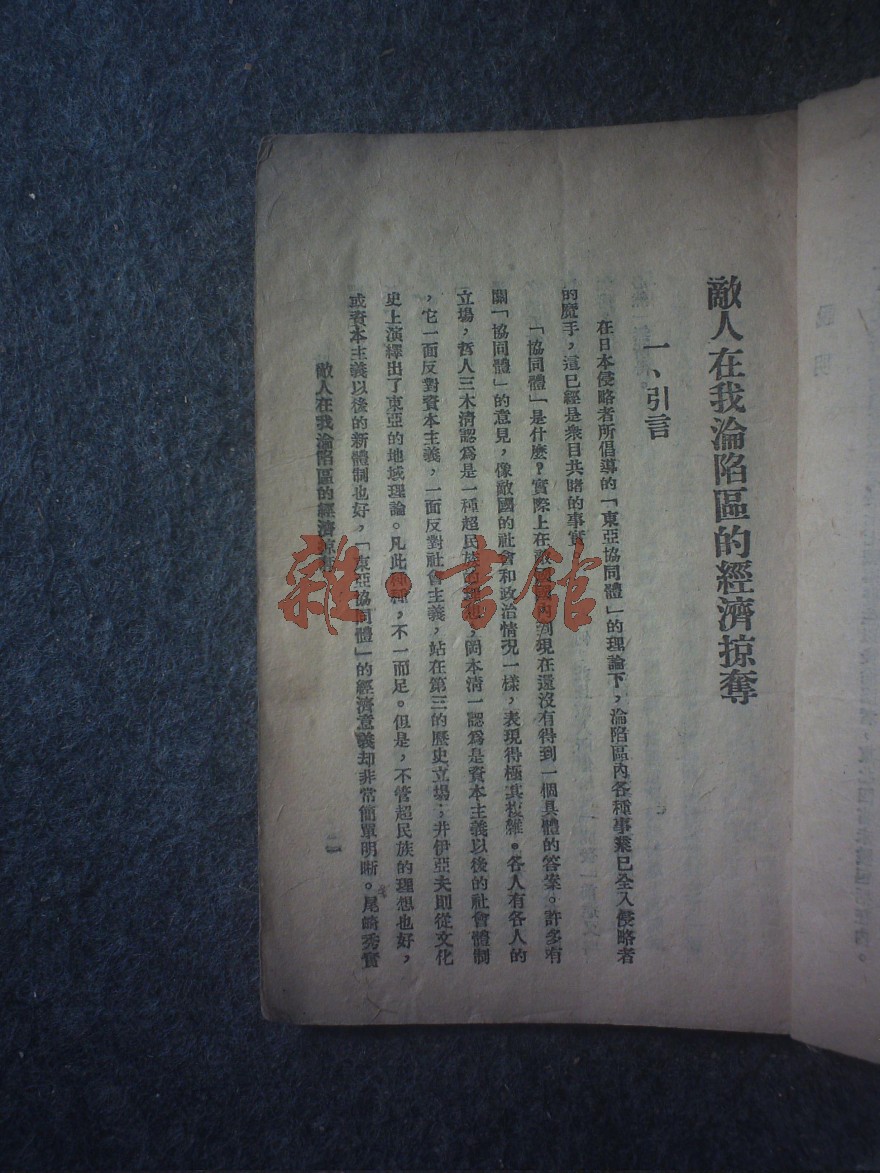 敵人在我淪陷區的經濟掠奪
一、引言
在日本侵略者所倡導的「東亞協同體」的理論下，淪陷區內各種事業已全入侵略者
的魔手，這已經是衆目共睹的事實
「協同體」是什麽？實際上在敵國國內到現在還沒有得到一個具體的答案。許多有
關「協同體」的意見，像敵國的社會和政治情況一樣，表現得極其複雜。各人有各人的
立場，哲人三木清認爲是一種超民族的理想，岡本清一認爲是資本主義以後的社會體制
，它一面反對資本主義，一面反對社會主義，站在第三的歷史立場；井伊亞夫則從文化
史上演繹出了東亞的地域理論。凡此種種，不一而足。但是，不管超民族的理想也好，
或資本主義以後的新體制也好，「東亞協同體」的經濟意義却非常簡單明晰。尾崎秀實
敵人在我淪陷區的經濟掠奪
雜·書館